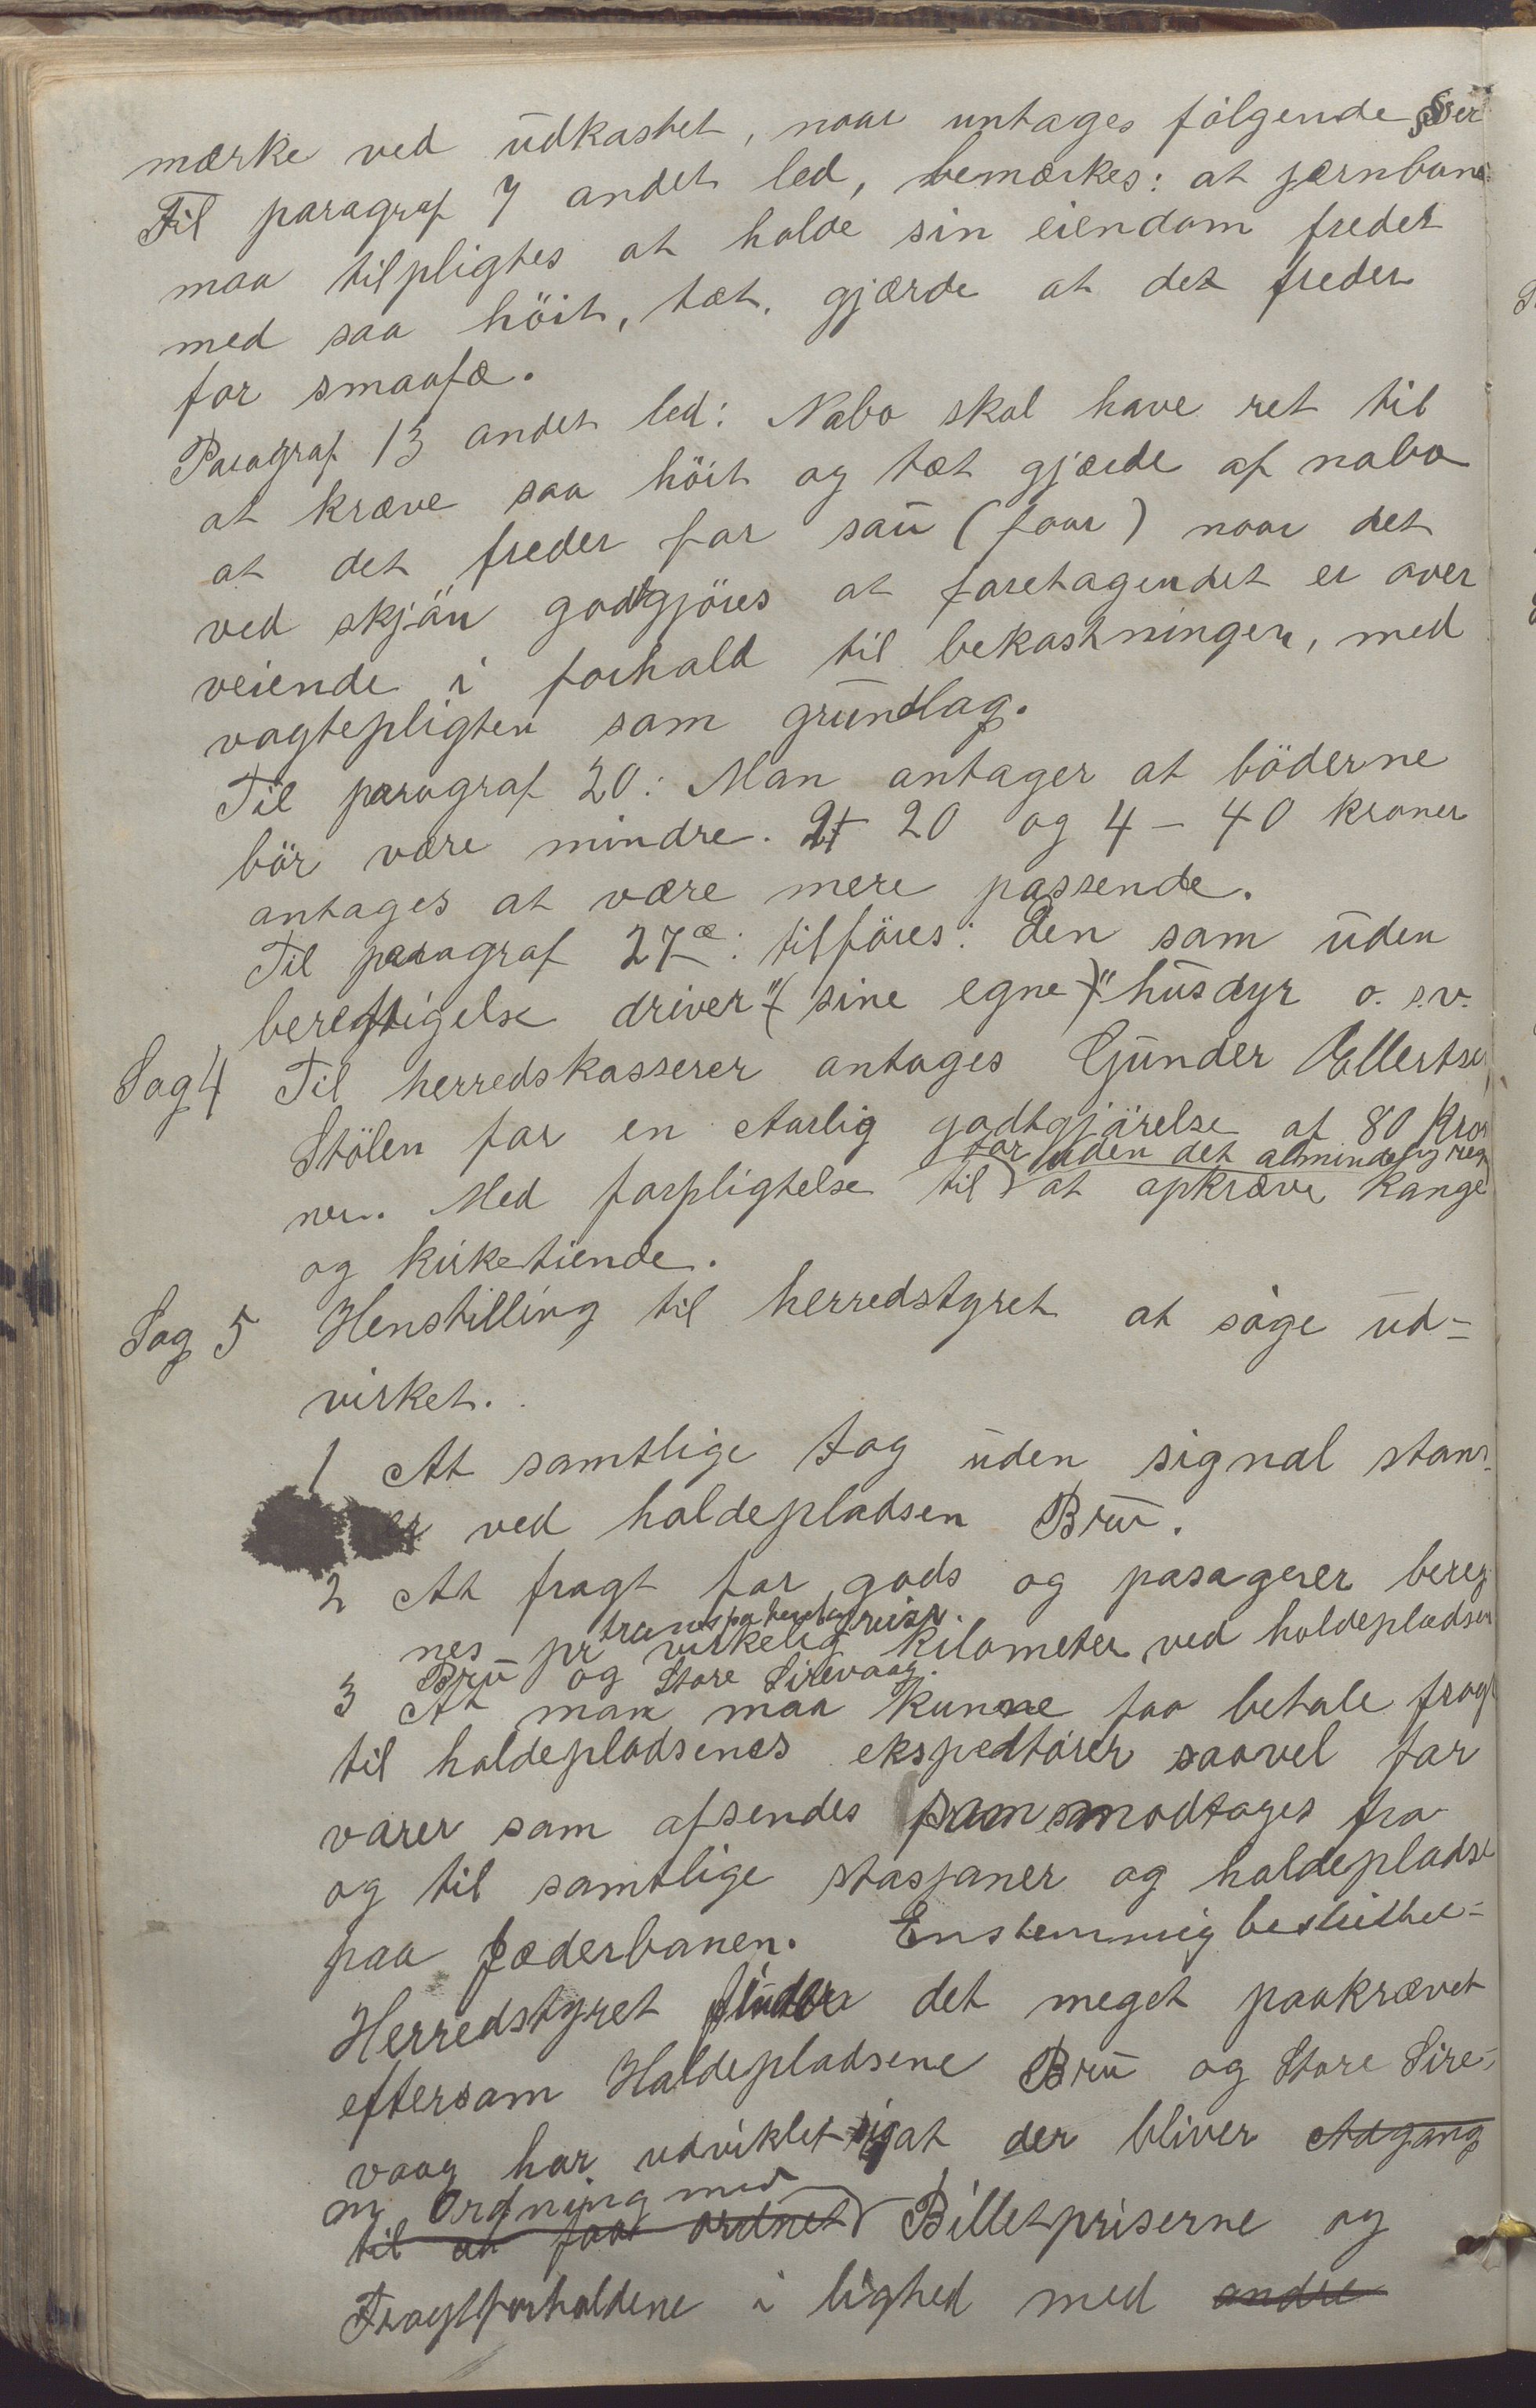 mærke ved udkastet, naar untages følgende §§er
Til paragraf 7 andet led, bemærkes: at jernbane
maa tilpligtes at holde sin eiendom fredet
med saa höit, tæt, gjærde at det freder
for smaafæ.
Paragraf 13 andet led: Nabo skal have ret til
at kræve saa höit og tæt gjærde af nabo
at det freder for sau (faar) naar det
ved skjön godtgjöres at foretagendet er over
veiende i forhold til bekostningen, med
vagtepligten som grundlag.
Til paragraf 20: Man antager at böderne
bör være mindre. 2 20 og 4 - 40 kroner
antages at være mere passende.
Til paragraf 27æ: tilföres: den som uden
berettigelse driver "(sine egne)" husdyr o.s.v.
Sag 4 Til herredskasserer antages Gunder Ellertsen
Stölen for en aarlig godtgjörelse af 80 kro
for uden det almindelig reg
ner. Med forpligtelse til at opkræve Konge
og kirketiende.
Sag 5 Henstilling til herredstyret at söge ud-
virket.
1 At samtlige tog uden signal stans-
er ved holdepladsen Bru.
2 At fragt for gods og pasagerer bereg
nes pr virkelig kilometer ved holdepladsen
Bru og Store Sirevaag.
3 At man maa kunne faa betale fragt
til holdepladsenes ekspeditører saavel for
varer som afsendes som modtages fra
og til samtlige stasjoner og holdepladse
paa Jæderbanen. Enstemmig besluttet-
Herredstyret finder det meget paakrævet
eftersom Holdepladsene Bru og Store Sire-
vaag har udviklet sig at der bliver Adgang
en Ordning med
til at faa ordnet Billetpriserne og
Fragtforholdene i lighed med andre